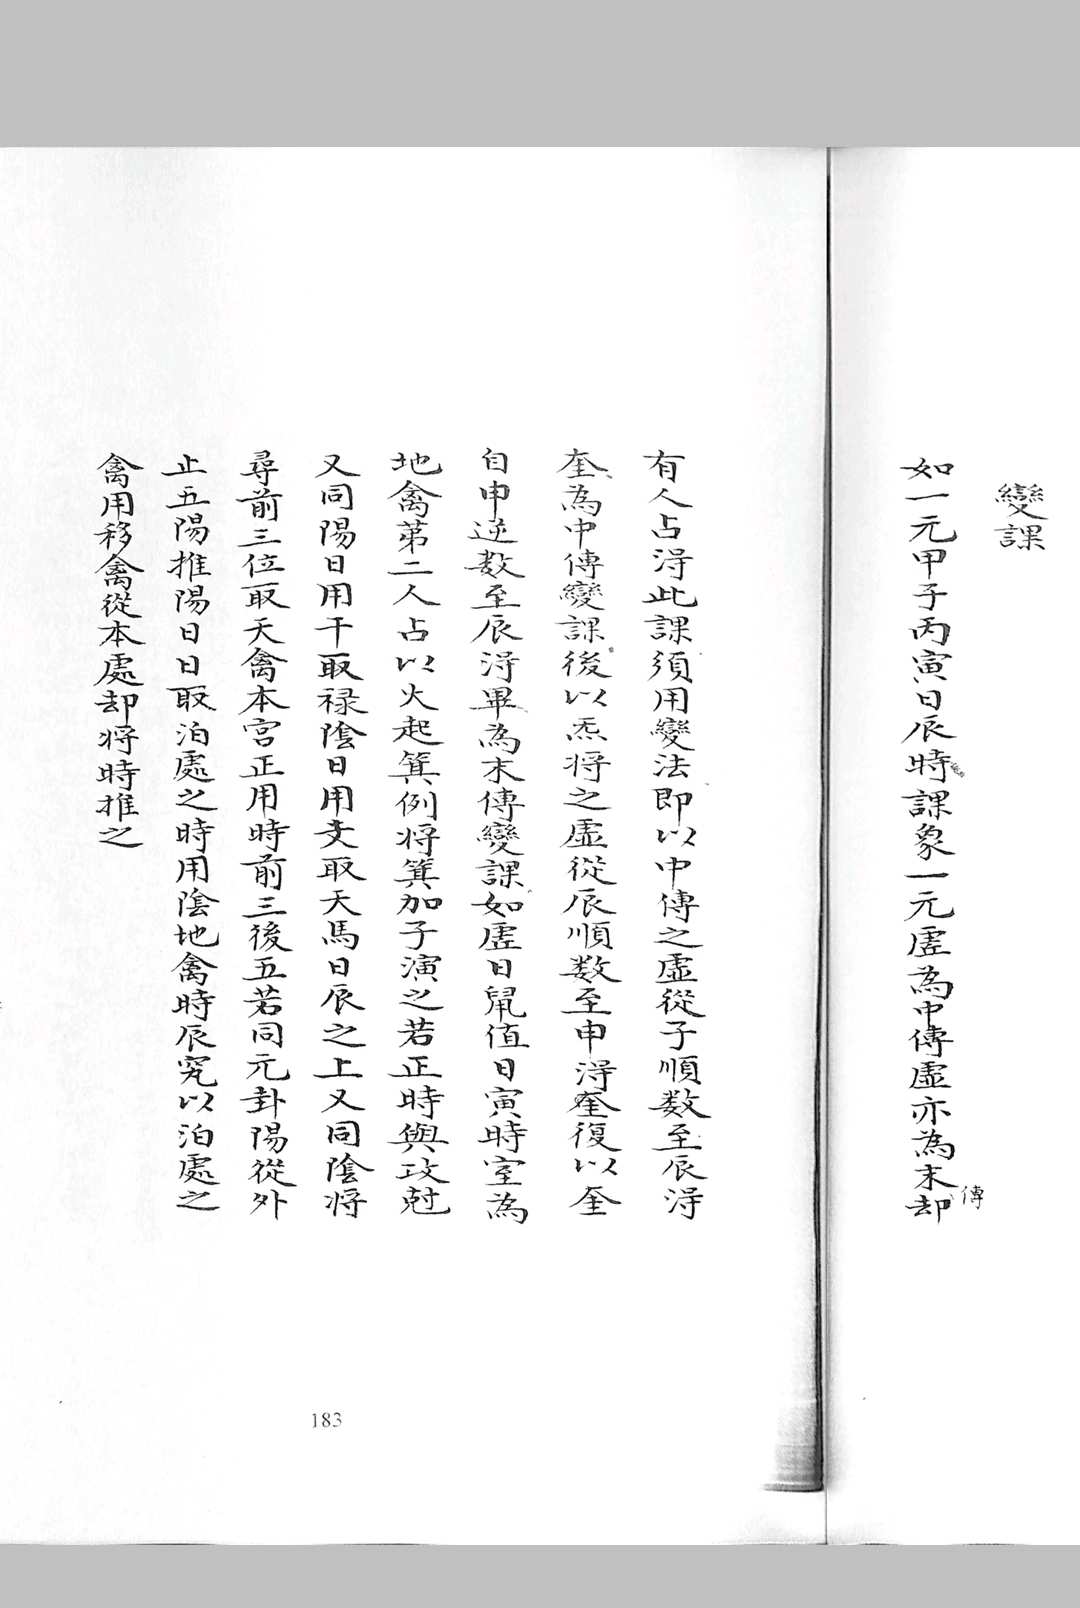 變課
如一元甲子丙寅日辰時課象一元虛為中傳虛亦為末傳却
有人占淂此課須用變法即以中傳之虛從子順数至辰淂
奎為中傳變課後以炁将之虛從辰順数至申淂奎復以奎
自申逆数至辰淂畢為末傳變課如虛日鼠值日寅時室為
地禽第二人占以火起箕例将箕加子演之若正時與攻尅
又同陽日用干取禄陰日用支取天馬日辰之上又同陰将
尋前三位取天禽本宮正用時前三後五若同元卦陽從外
止五陽推陽日日取泊處之時用陰地禽時辰究以泊處之
禽用移禽從本處却将時推之
183